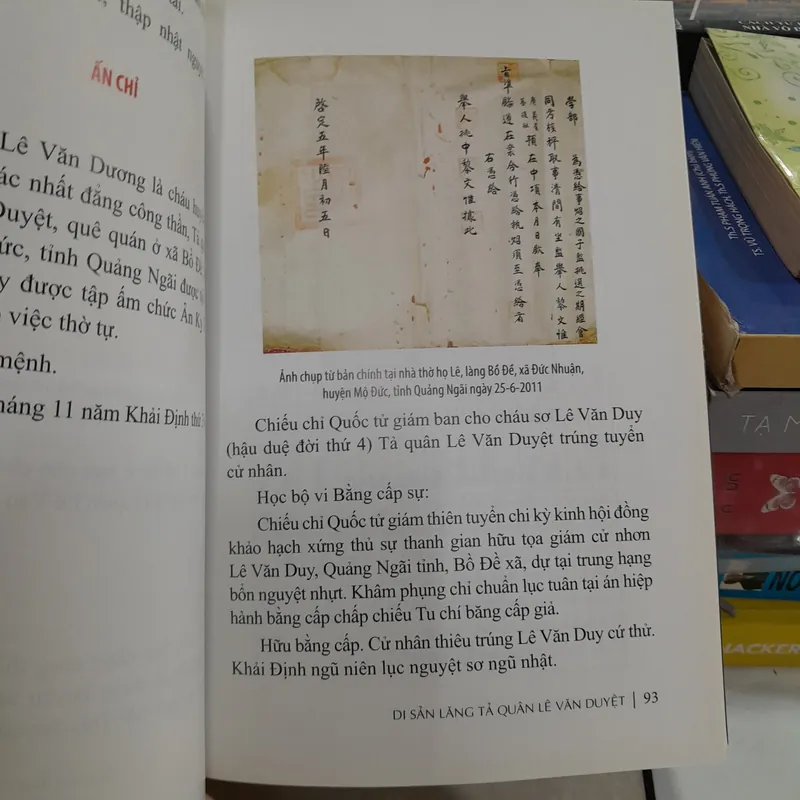 thập nhật
ẤN CHỈ
Lê Văn Dương là cháu
ác nhất đẳng công thần, Tả
Duyệt, quê quán ở xã Bồ Đề
ức, tỉnh Quảng Ngãi được
y được tập ấm chức Ấn Kỵ
việc thờ tự.
mệnh.
háng 11 năm Khải Định thứ
學部
同考核秤取事清閒有坐監舉人黎文惟
預在中項本月日欽奉
旨準錄遵在案合行憑給執照須至憑給者
右憑給
舉人挑中黎文惟據此
啓定五年陸月初五日
Ảnh chụp từ bản chính tại nhà thờ họ Lê, làng Bồ Đề, xã Đức Nhuận,
huyện Mộ Đức, tỉnh Quảng Ngãi ngày 25-6-2011
Chiếu chỉ Quốc tử giám ban cho cháu sơ Lê Văn Duy
(hậu duệ đời thứ 4) Tả quân Lê Văn Duyệt trúng tuyển
cử nhân.
Học bộ vi Bằng cấp sự:
Chiếu chỉ Quốc tử giám thiên tuyển chi kỳ kinh hội đồng
khảo hạch xứng thủ sự thanh gian hữu tọa giám cử nhơn
Lê Văn Duy, Quảng Ngãi tỉnh, Bồ Đề xã, dự tại trung hạng
bổn nguyệt nhựt. Khâm phụng chỉ chuẩn lục tuân tại án hiệp
hành bằng cấp chấp chiếu Tu chí băng cấp giả.
Hữu bằng cấp. Cử nhân thiêu trúng Lê Văn Duy cứ thử.
Khải Định ngũ niên lục nguyệt sơ ngũ nhật.
DI SẢN LĂNG TẢ QUÂN LÊ VĂN DUYỆT | 93
TS. PHẠM TUẤN ANH (CHỦ BIÊN)
TS VŨ TRỌNG HÁCH, TS PHÙNG VĂN HIỀN
TẠ M
NO
HACKER